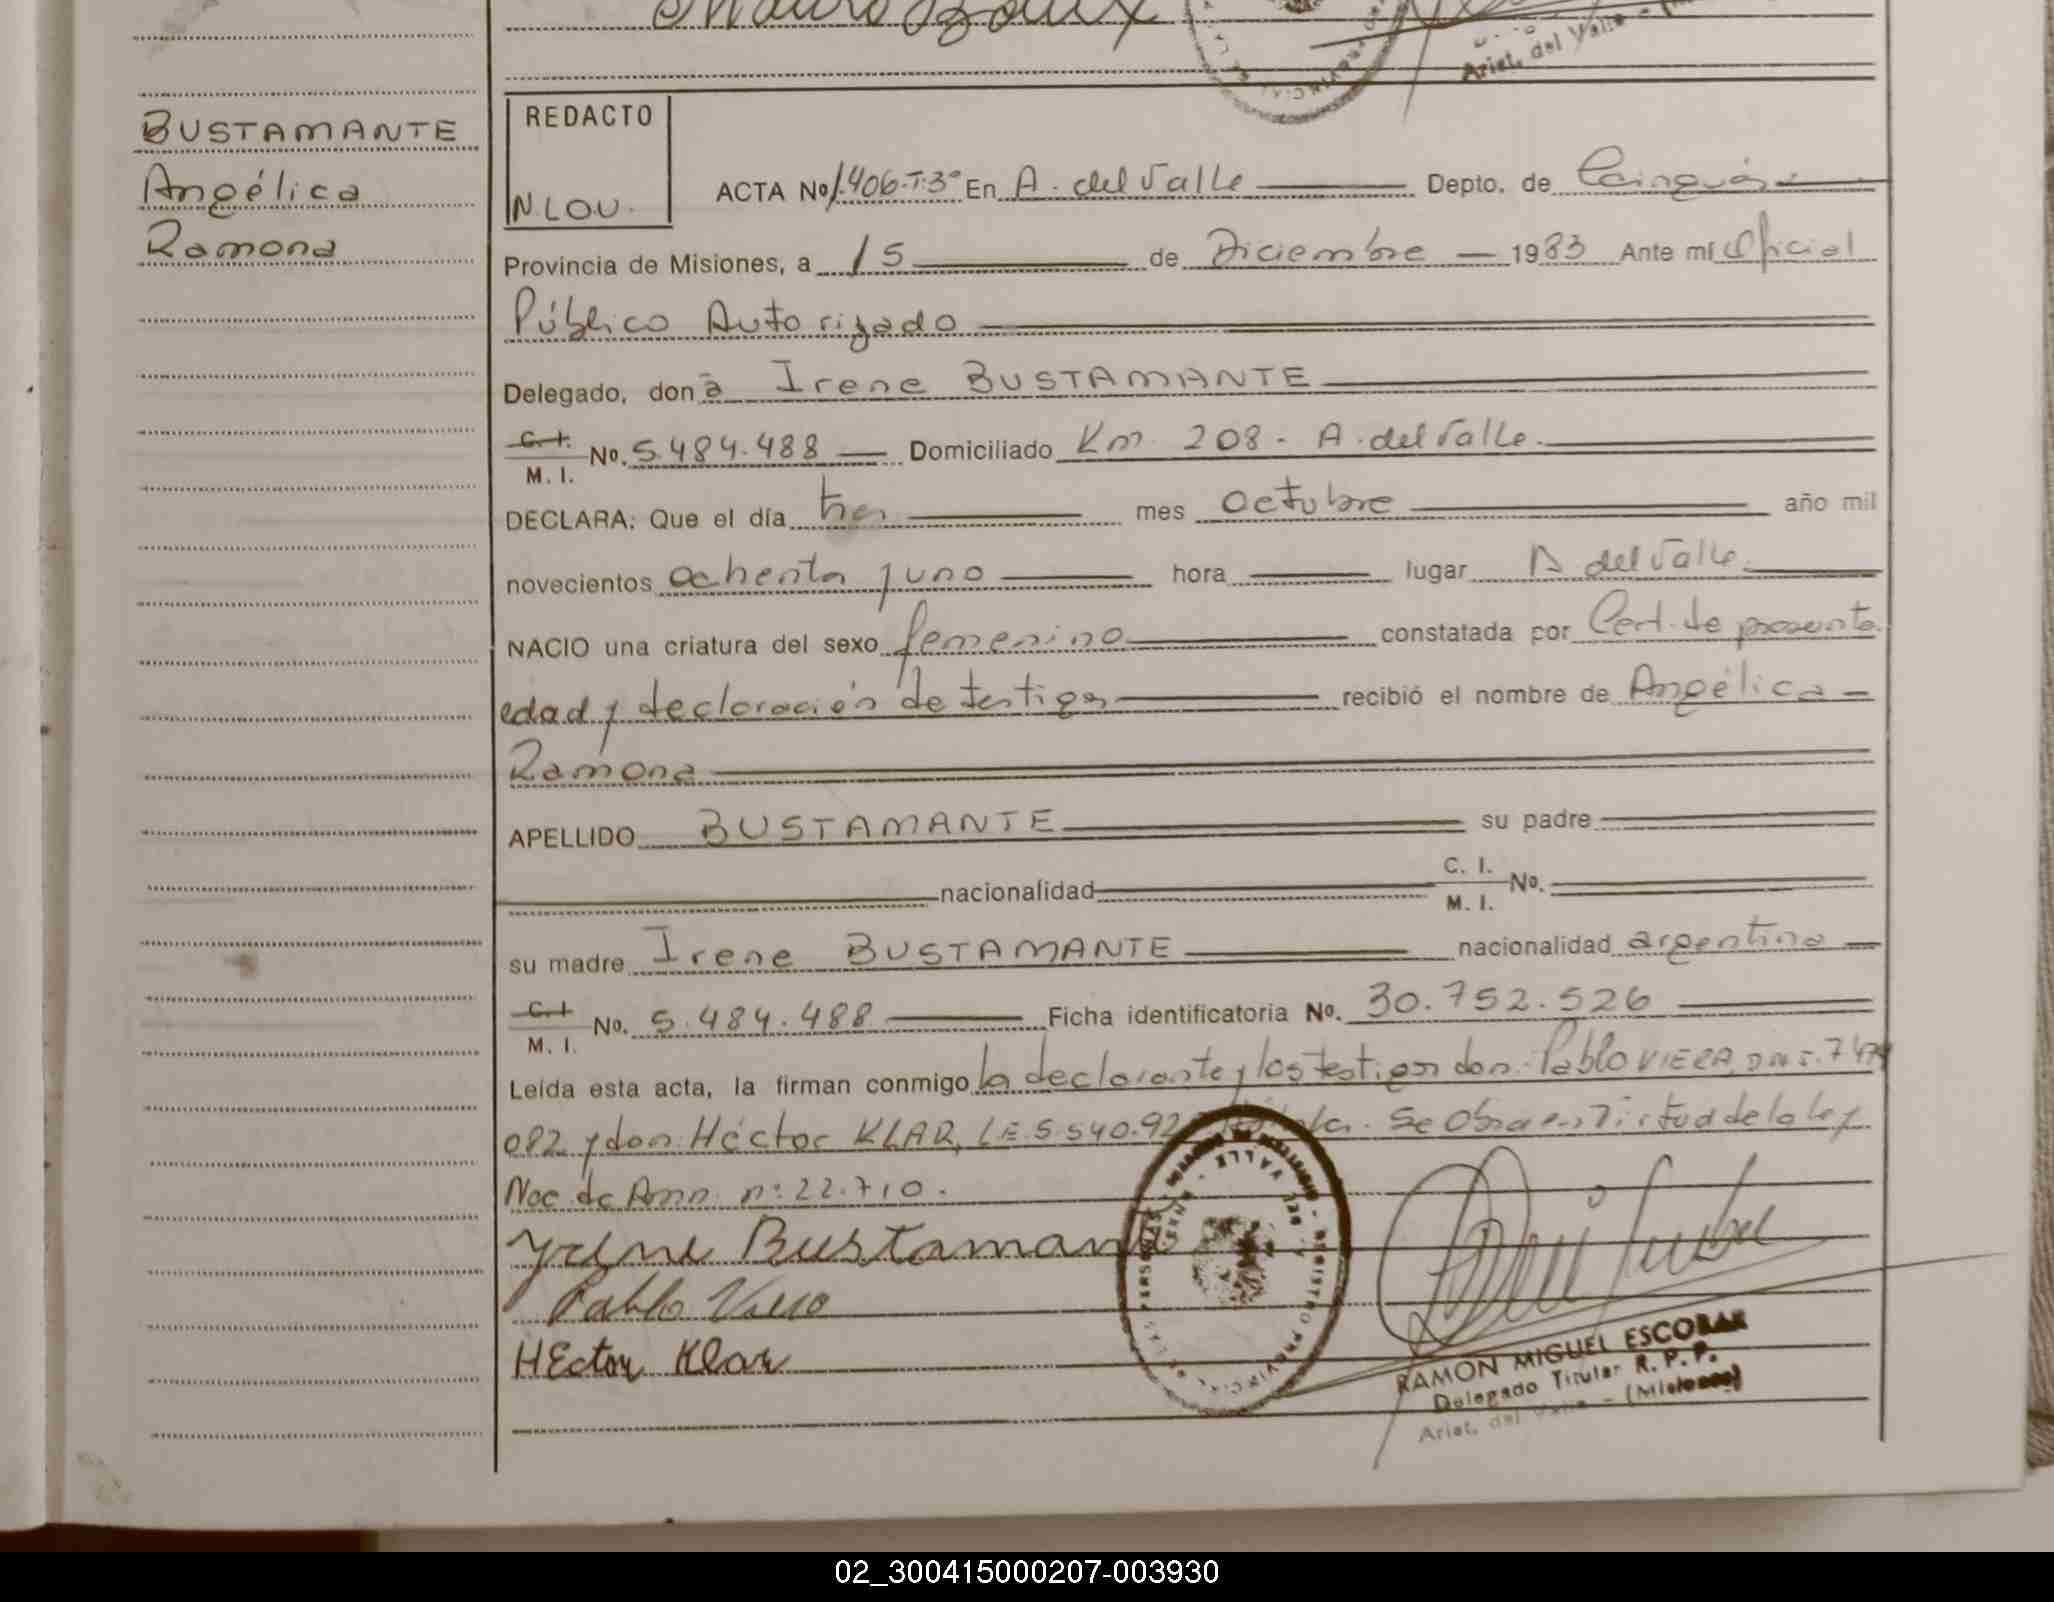 Ariet. del Valle -
BUSTAMANTE
Angélica
Ramona
REDACTO
N.LOU.
ACTA No 1.406-T.3º En A. del Valle Depto. de Cainguás
Provincia de Misiones, a 15 de Diciembre 1983 Ante mí Oficial
Público Autorizado
Delegado, don a Irene BUSTAMANTE
C. I. M. I. No. 5.484.488 Domiciliado Km 208 - A. del Valle.
DECLARA: Que el día tres mes octubre año mil
novecientos ochenta y uno hora lugar A del Valle
NACIO una criatura del sexo femenino constatada por Cert. de presunta
edad y declaración de testigos recibió el nombre de Angélica
Ramona
APELLIDO BUSTAMANTE su padre
nacionalidad C. I. M. I. No.
su madre Irene BUSTAMANTE nacionalidad argentina
C. I. M. I. No. 5.484.488 Ficha identificatoria No. 30.752.526
Leída esta acta, la firman conmigo la declarante y los testigos don Pablo VIERA, D.N.I. 7.474
082 y don Héctor KLAR, L.E. 5.540.92 Se Obra en Virtud de la ley
Nac de Amn. nº: 22.710.
Yrene Bustamante
Pablo Viera
HEctor Klar
RAMON MIGUEL ESCOBAR
Delegado Titular R. P. P.
Ariet. del Valle - (Misiones)
02_300415000207-003930